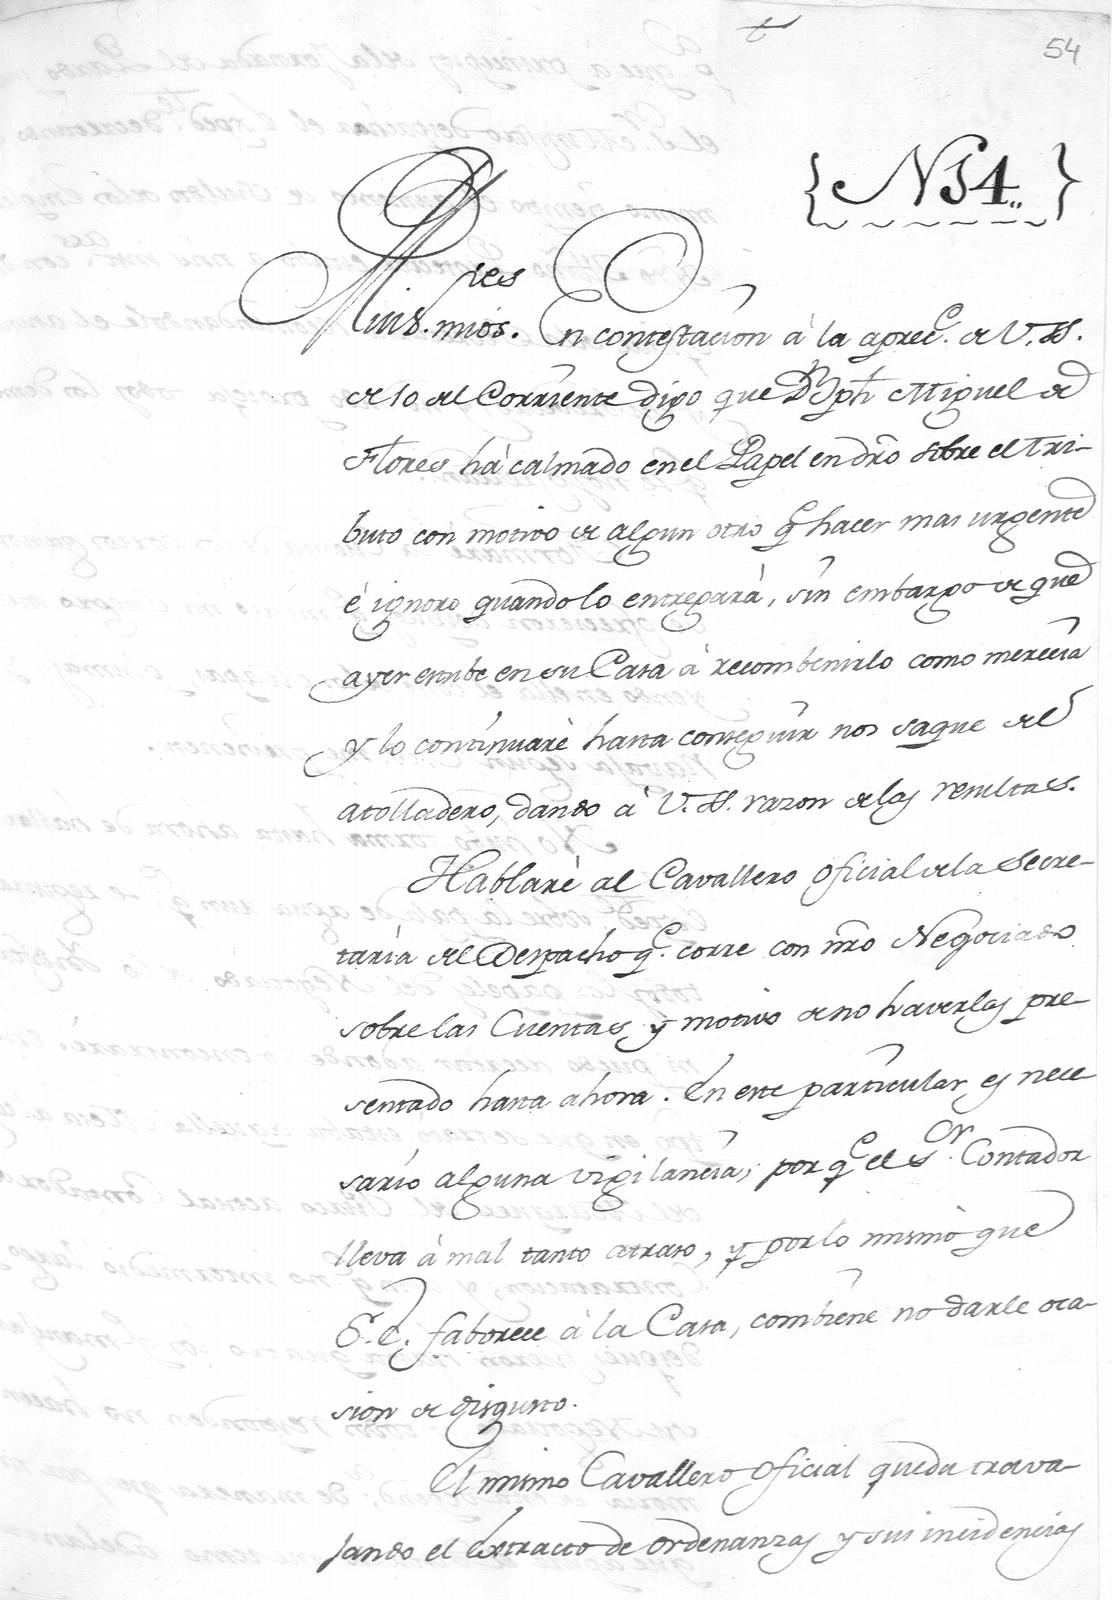 54
{N 54,,}
res
Muis. mios. En contestacion à la aprec.e de V.SS.
de 10 del Corriente digo que Dn Jph Miguel de
Flores há calmado en el Papel en dro sobre el Tri-
buto con motivo de algun otro q.e hacer mas urgente
è ignoro quando lo entregará, sin embargo de que
ayer estube en su Casa à recombenirlo como merecia
y lo continuarè hasta conseguir nos saque del
atolladero, dando à V.SS. razon de las resultas.
Hablarè al Cavallero Oficial de la Secre-
taria del Despacho q.e corre con nro Negociado
sobre las Cuentas y motivo de no haverlas pre-
sentado hasta ahora. En este particular es nece
sario alguna vigilancia, por q.e el S.or Contador
lleva à mal tanto atraso, y por lo mismo que
S.E. faborece à la Casa, combiene no darle oca-
sion de disgusto.
El mismo Cavallero Oficial queda trava-
jando el Extracto de ordenanzas y sus incidencias